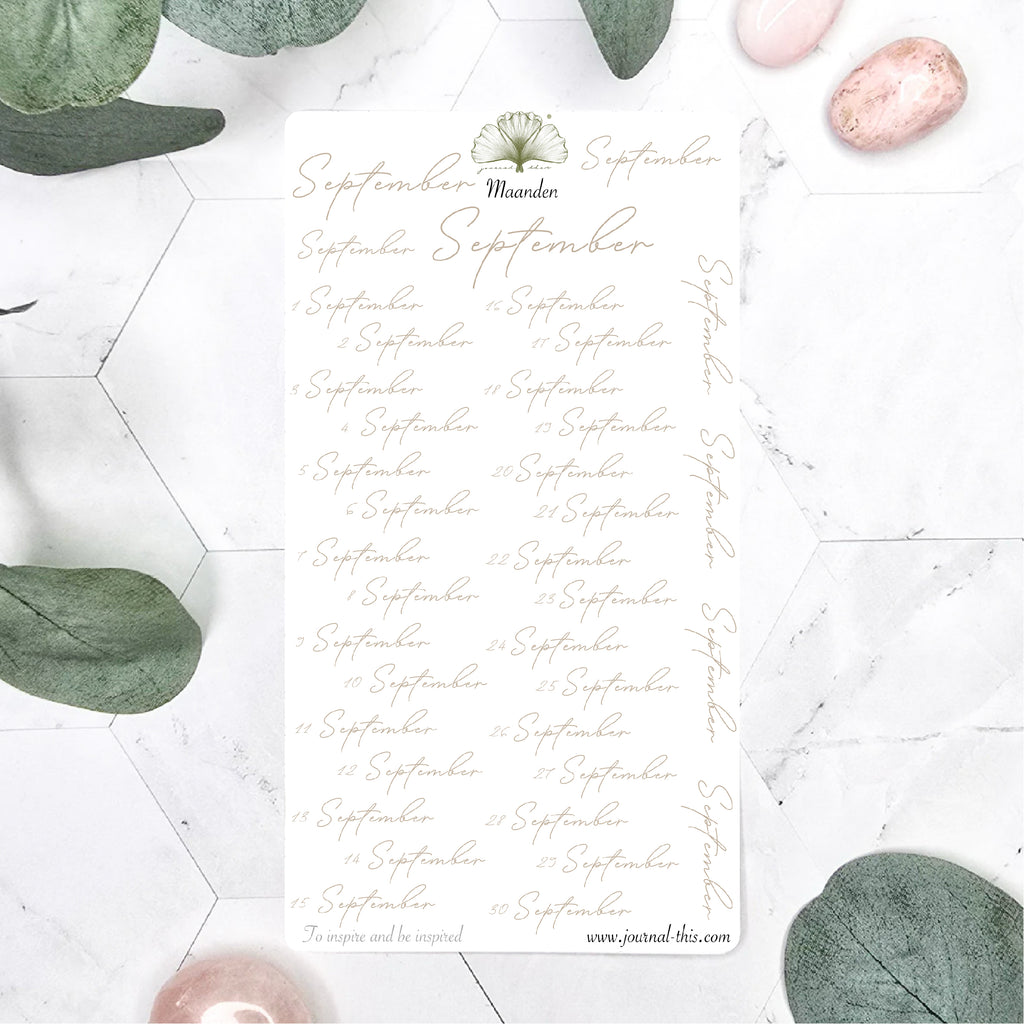 September
journal this
September
Maanden
September
September
1 September
16 September
2 September
17 September
3 September
18 September
4 September
19 September
5 September
20 September
6 September
21 September
7 September
22 September
8 September
23 September
9 September
24 September
10 September
25 September
11 September
26 September
12 September
27 September
13 September
28 September
14 September
29 September
15 September
30 September
September
September
September
September
To inspire and be inspired
www.journal-this.com